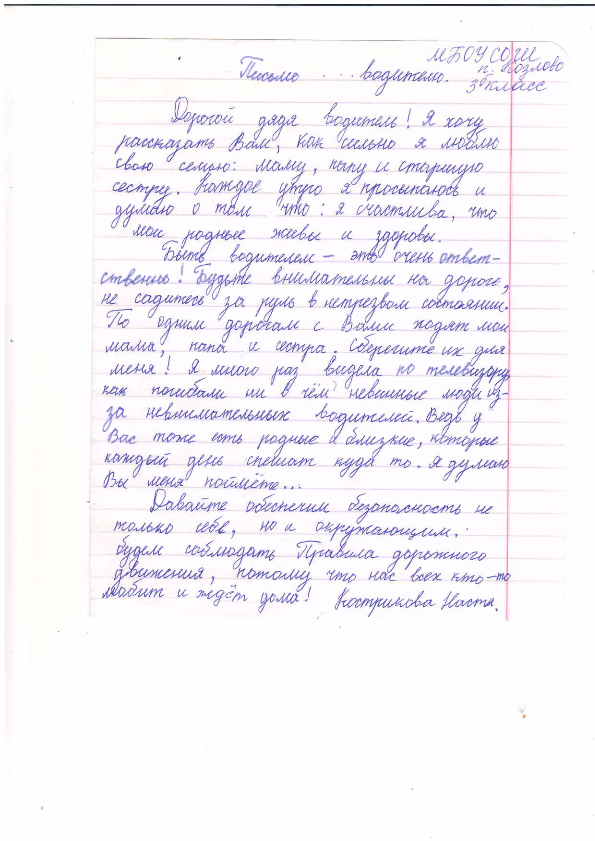 МБОУ СОШ
п. Козлово
3 класс
Письмо ... водителю.
Дорогой дядя водитель! Я хочу
рассказать Вам, как сильно я люблю
свою семью: маму, папу и старшую
сестру. Каждое утро я просыпаюсь и
думаю о том что: я счастлива, что
мои родные живы и здоровы.
Быть водителем – это очень ответ-
ственно! Будьте внимательны на дороге,
не садитесь за руль в нетрезвом состоянии.
По одним дорогам с Вами ходят мои
мама, папа и сестра. Сберегите их для
меня! Я много раз видела по телевизору
как погибали ни в чём невинные люди из-
за невнимательных водителей. Ведь у
Вас тоже есть родные и близкие, которые
каждый день спешат куда то. Я думаю
Вы меня поймёте...
Давайте обеспечим безопасность не
только себе, но и окружающим.
будем соблюдать Правила дорожного
движения, потому что нас всех кто-то
любит и ждёт дома! Кострикова Настя.